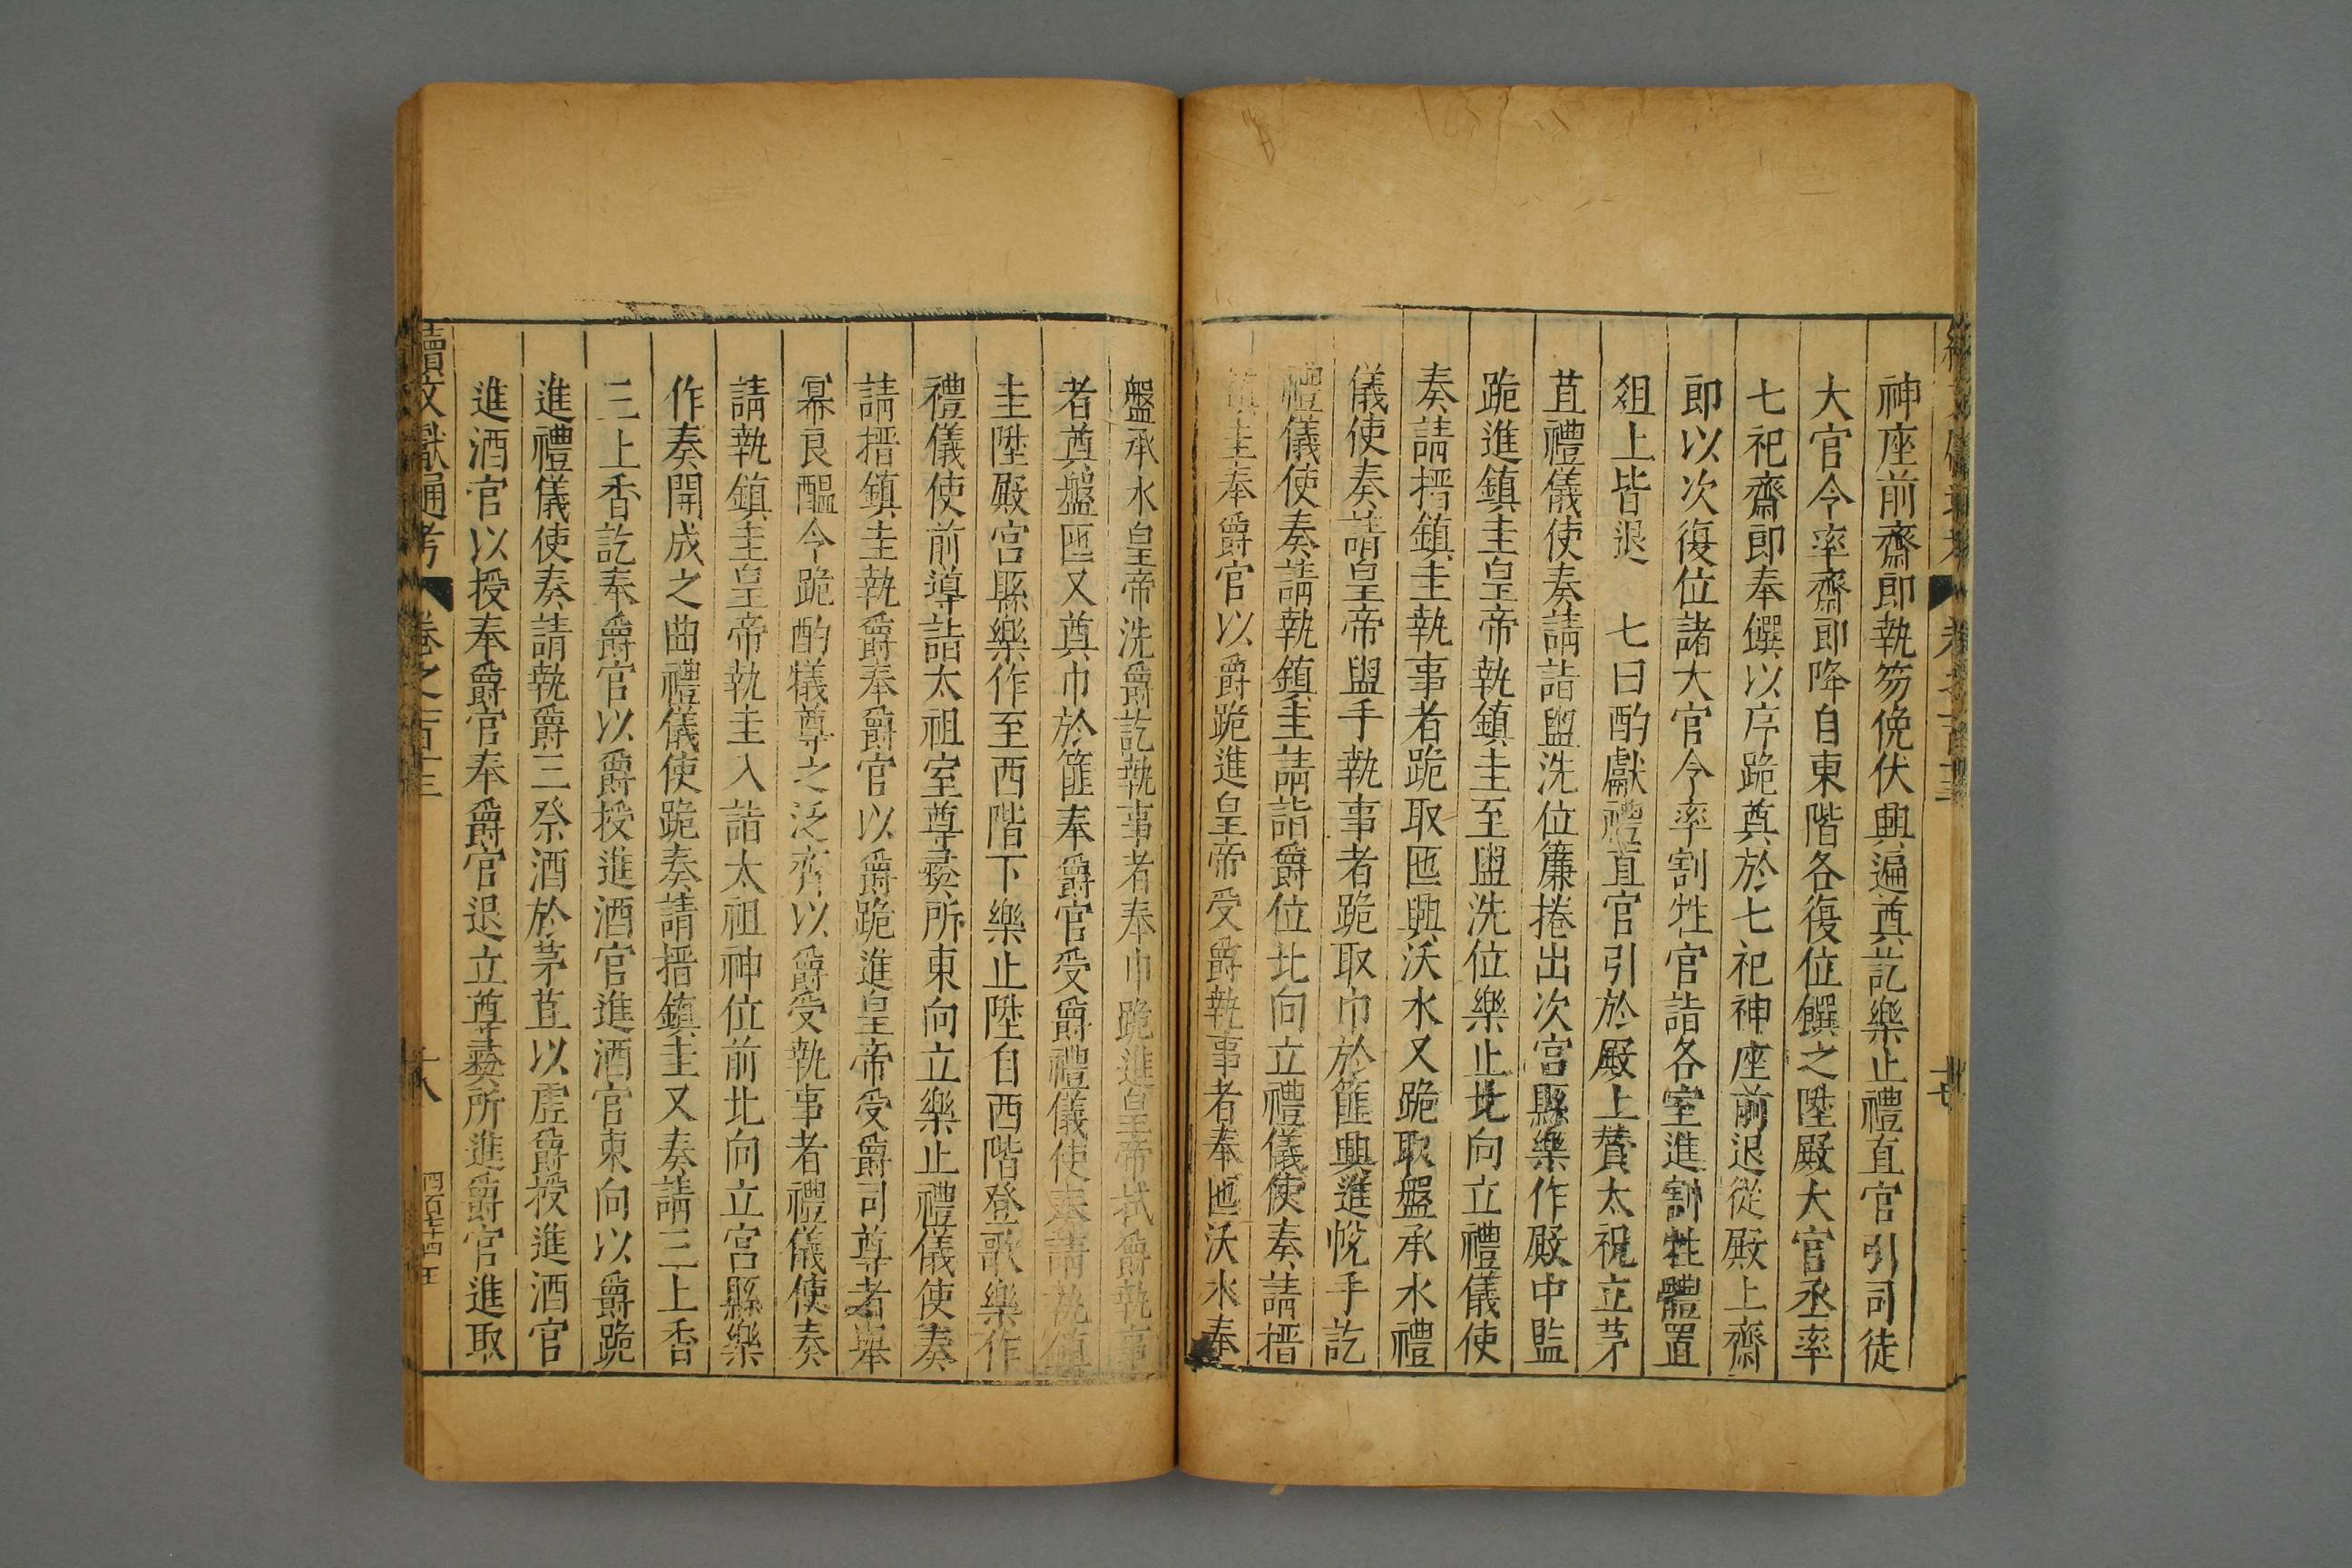 神座前齋郎執笏俛伏興遍奠訖樂止禮直官引司徒
大官令率齋郎降自東階各復位饌之陞殿大官丞率
七祀齋郎奉饌以序跪奠於七祀神座前退從殿上齋
郎以次復位諸大官令率割牲官詣各室進割牲體置
俎上皆退 七曰酌獻禮直官引於殿上贊太祝立茅
苴禮儀使奏請詣盥洗位簾捲出次宮縣樂作殿中監
跪進鎮圭皇帝執鎮圭至盥洗位樂止北向立禮儀使
奏請搢鎮圭執事者跪取匜興沃水又跪取盤承水禮
儀使奏請皇帝盥手執事者跪取巾於篚興進帨手訖
禮儀使奏請執鎮圭請詣爵位北向立禮儀使奏請搢
鎮圭奉爵官以爵跪進皇帝受爵執事者奉匜沃水奉
盤承水皇帝洗爵訖執事者奉巾跪進皇帝拭爵執事
者奠盤匜又奠巾於篚奉爵官受爵禮儀使奏請執鎮
圭陞殿宮縣樂作至西階下樂止陞自西階登歌樂作
禮儀使前導詣太祖室尊彞所東向立樂止禮儀使奏
請搢鎮圭執爵奉爵官以爵跪進皇帝受爵司尊者舉
冪良醖令跪酌犧尊之泛齊以爵受執事者禮儀使奏
請執鎮圭皇帝執圭入詣太祖神位前北向立宮縣樂
作奏開成之曲禮儀使跪奏請搢鎮圭又奏請三上香
三上香訖奉爵官以爵授進酒官進酒官東向以爵跪
進禮儀使奏請執爵三祭酒於茅苴以虛爵授進酒官
進酒官以授奉爵官奉爵官退立尊彞所進爵官進取
續文獻通考 卷之百十三 十八